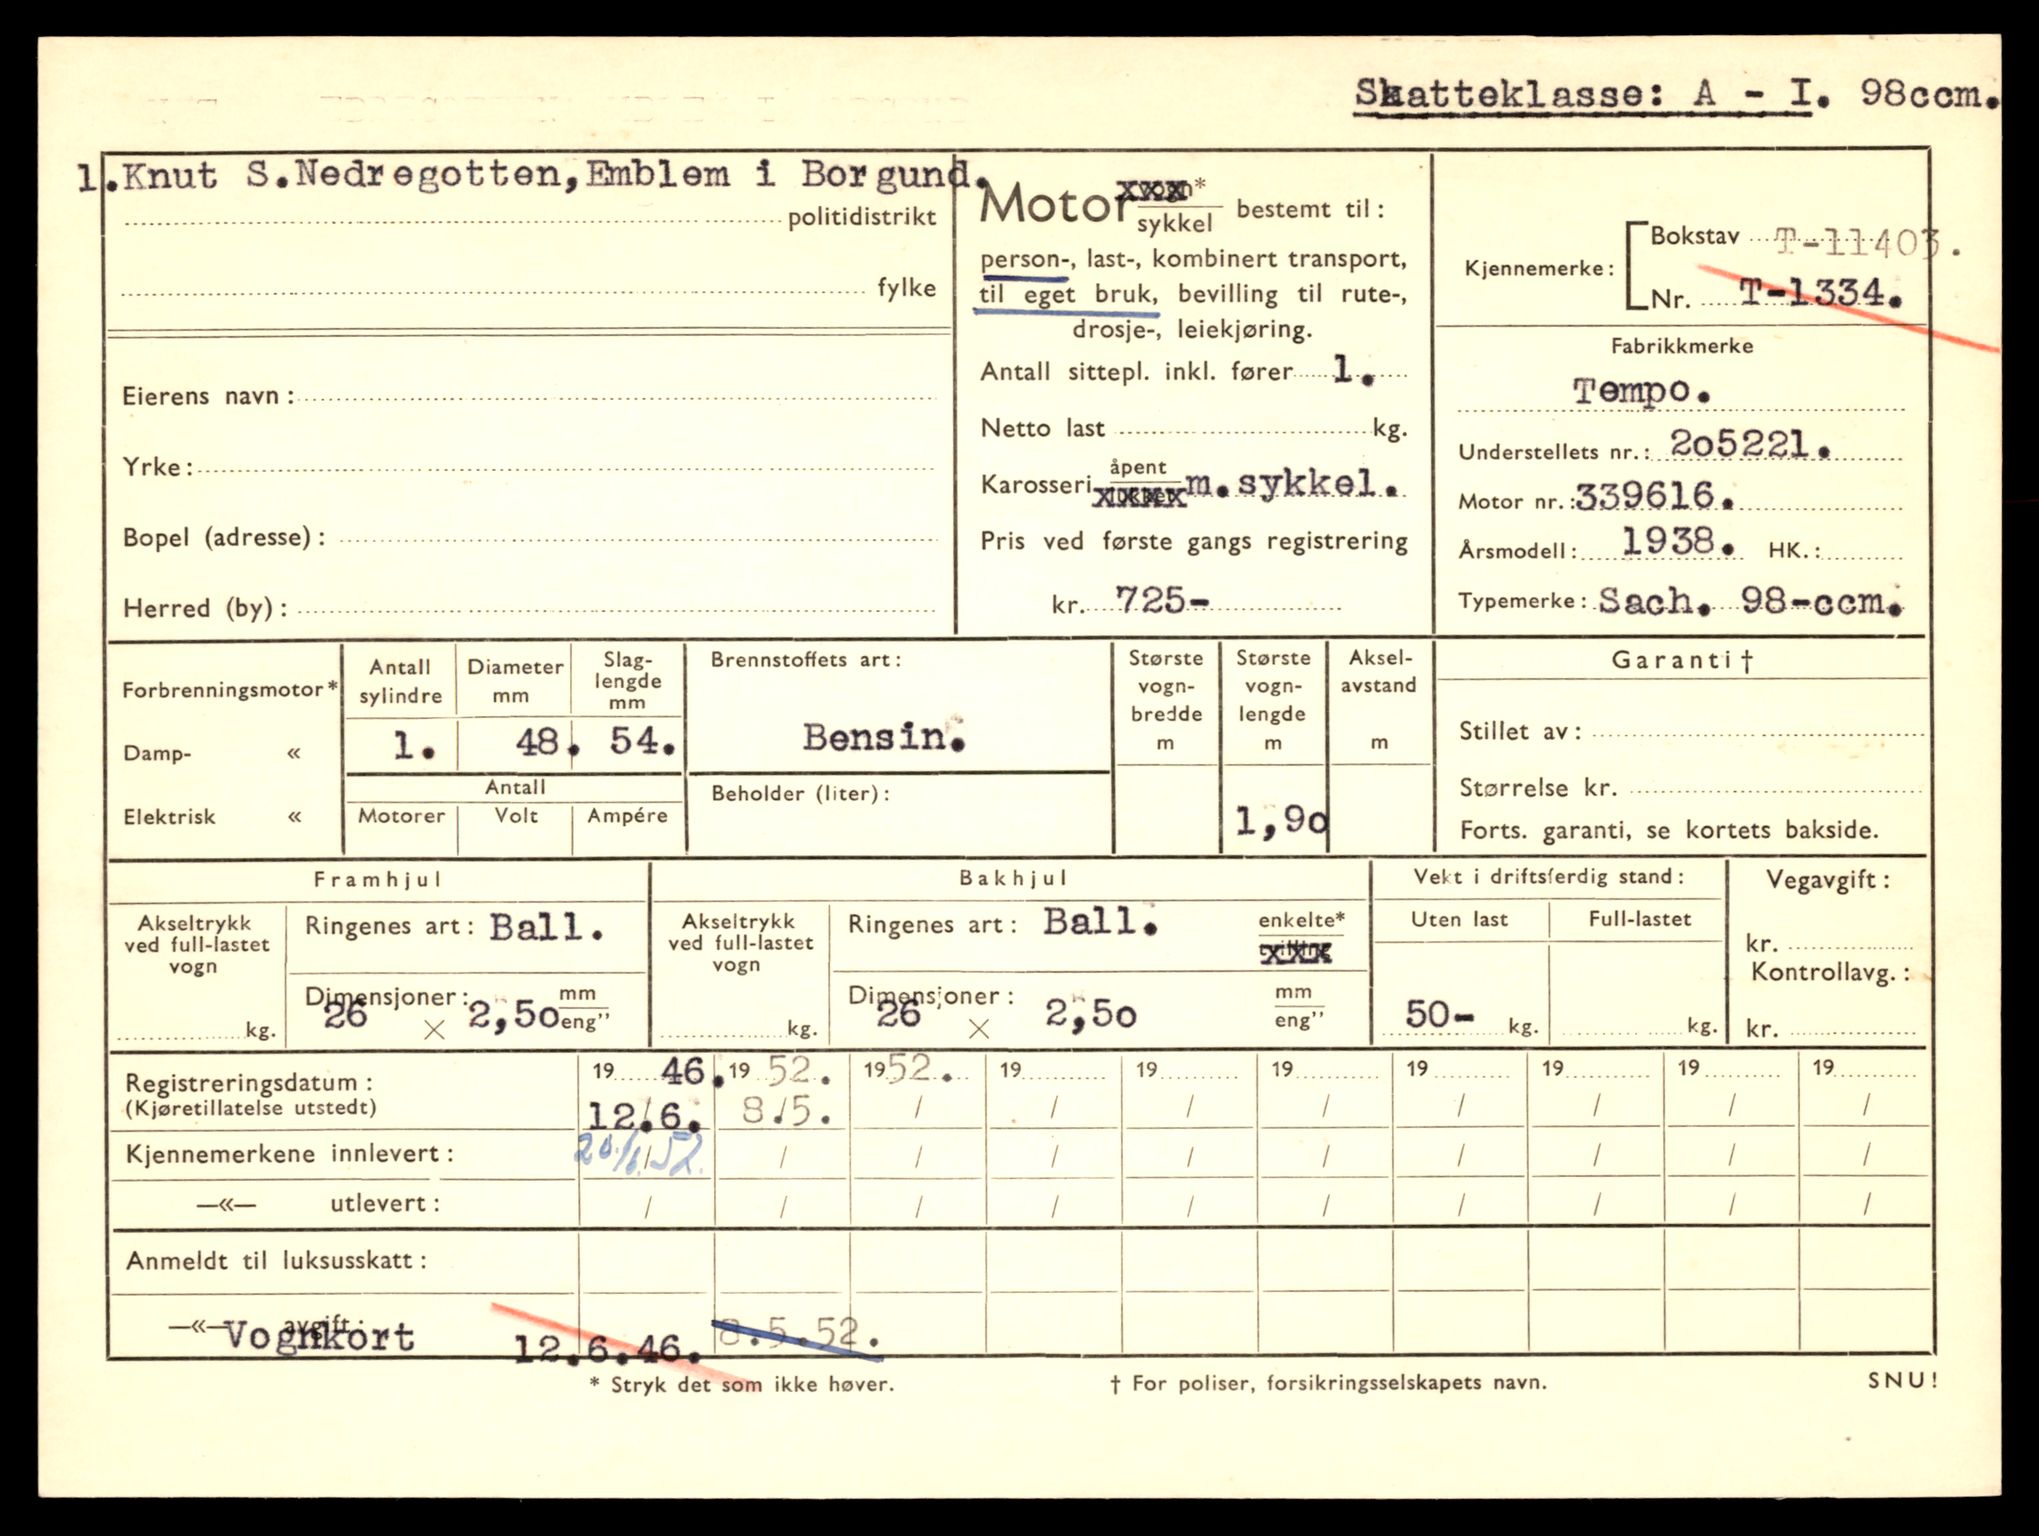 Skatteklasse: A - I. 98ccm.
1.Knut S.Nedregotten,Emblem i Borgund.
politidistrikt
fylke
Eierens navn:
Yrke:
Bopel (adresse):
Herred (by):
Motor vogn*
sykkel bestemt til:
person-, last-, kombinert transport,
til eget bruk, bevilling til rute-,
drosje-, leiekjøring.
Antall sittepl. inkl. fører 1.
Netto last kg.
åpent
Karosseri lukket m.sykkel.
Pris ved første gangs registrering
kr. 725-
Kjennemerke:
Bokstav T-11403.
Nr. T-1334.
Fabrikkmerke
Tempo.
Understellets nr.: 2o5221.
Motor nr.: 339616.
Årsmodell: 1938. HK.:
Typemerke: Sach. 98-ccm.
Forbrenningsmotor*
Damp- «
Elektrisk «
Antall sylindre
Diameter mm
Slag-lengde mm
1. 48. 54.
Antall
Motorer Volt Ampére
Brennstoffets art:
Bensin.
Beholder (liter):
Største vogn-bredde m
Største vogn-lengde m
1,9o
Aksel-avstand m
Garanti†
Stillet av:
Størrelse kr.
Forts. garanti, se kortets bakside.
Framhjul
Akseltrykk ved full-lastet vogn
kg.
Ringenes art: Ball.
Dimensjoner:
26 × 2,5o mm eng”
Bakhjul
Akseltrykk ved full-lastet vogn
kg.
Ringenes art: Ball. enkelte*
tvilling
Dimensjoner:
26 × 2,5o mm eng”
Vekt i driftsferdig stand:
Uten last Full-lastet
50- kg. kg.
Vegavgift:
kr.
Kontrollavg.:
kr.
Registreringsdatum: 19 46. 19 52. 19 52. 19 19 19 19 19 19 19
(Kjøretillatelse utstedt) 12.6. 8.5. / / / / / / / /
Kjennemerkene innlevert: 20/6 52. / / / / / / / / /
—«— utlevert: / / / / / / / / / /
Anmeldt til luksusskatt:
—«— avgift:
Vognkort 12.6.46. 8.5.52.
* Stryk det som ikke høver. † For poliser, forsikringsselskapets navn. SNU!